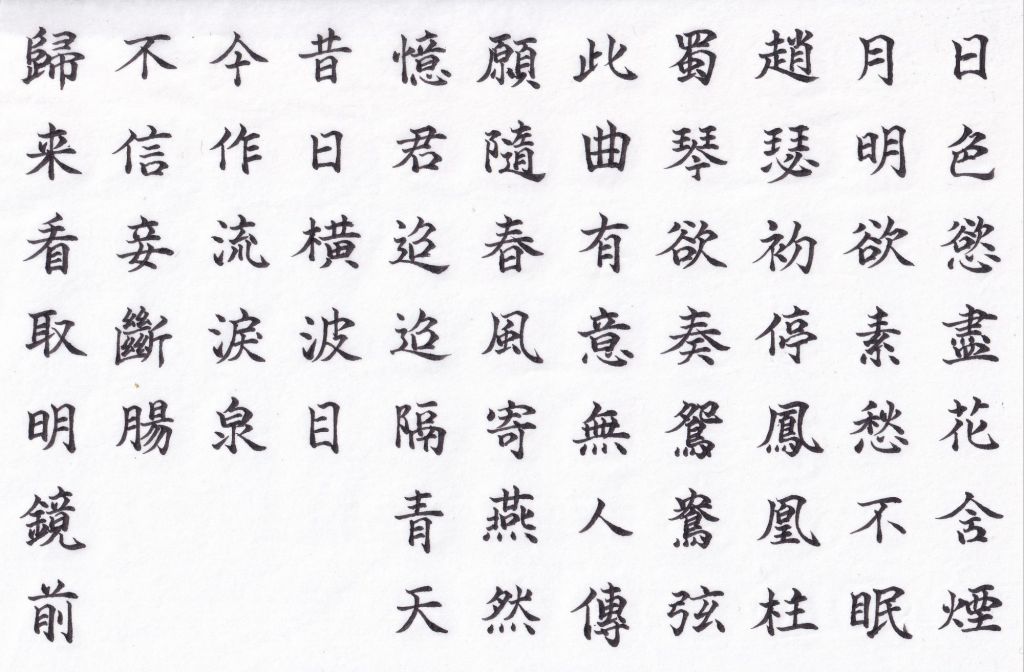 日色慾盡花含煙
月明欲素愁不眠
趙瑟初停鳳凰柱
蜀琴欲奏鴛鴦弦
此曲有意無人傳
願隨春風寄燕然
憶君迢迢隔青天
昔日橫波目
今作流淚泉
不信妾斷腸
歸来看取明鏡前